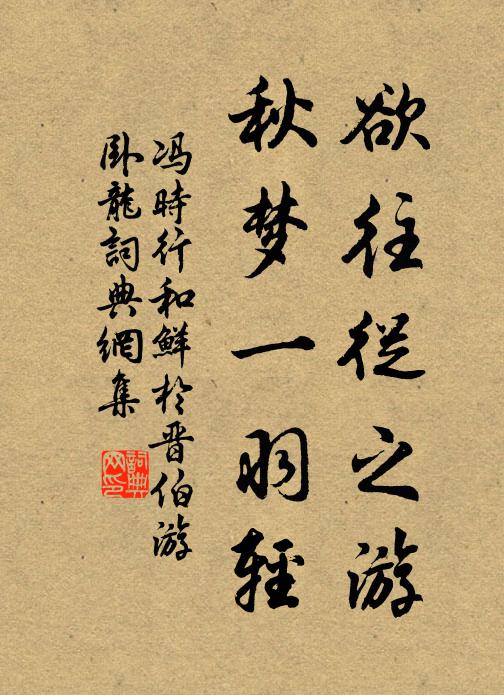 欲往従之游
秋梦一羽輕
冯時行和鮮於晋伯游
卧龍詞典網集
詞典网印